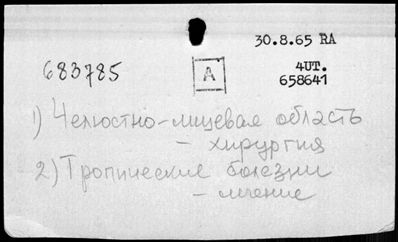 30.8.65 RA
683785
A
4UT.
658641
1) Челюстно-лицевая область
- хирургия
2) Тропические болезни
- лечение